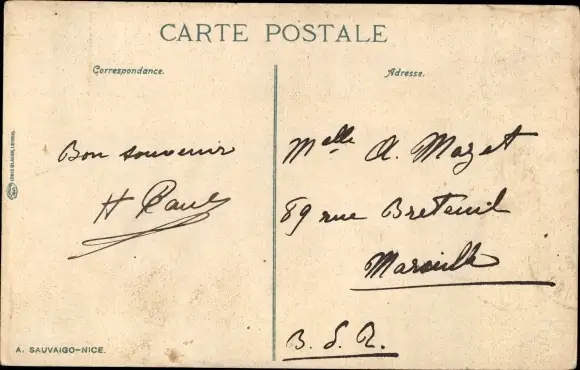 CARTE POSTALE
Correspondance.
Bon souvenir
H Paul
A. SAUVAIGO-NICE.
Adresse.
Melle A. Mazet
89 rue Breteuil
Marseille
B. d. R.
LOUIS GLASER, LEIPZIG.